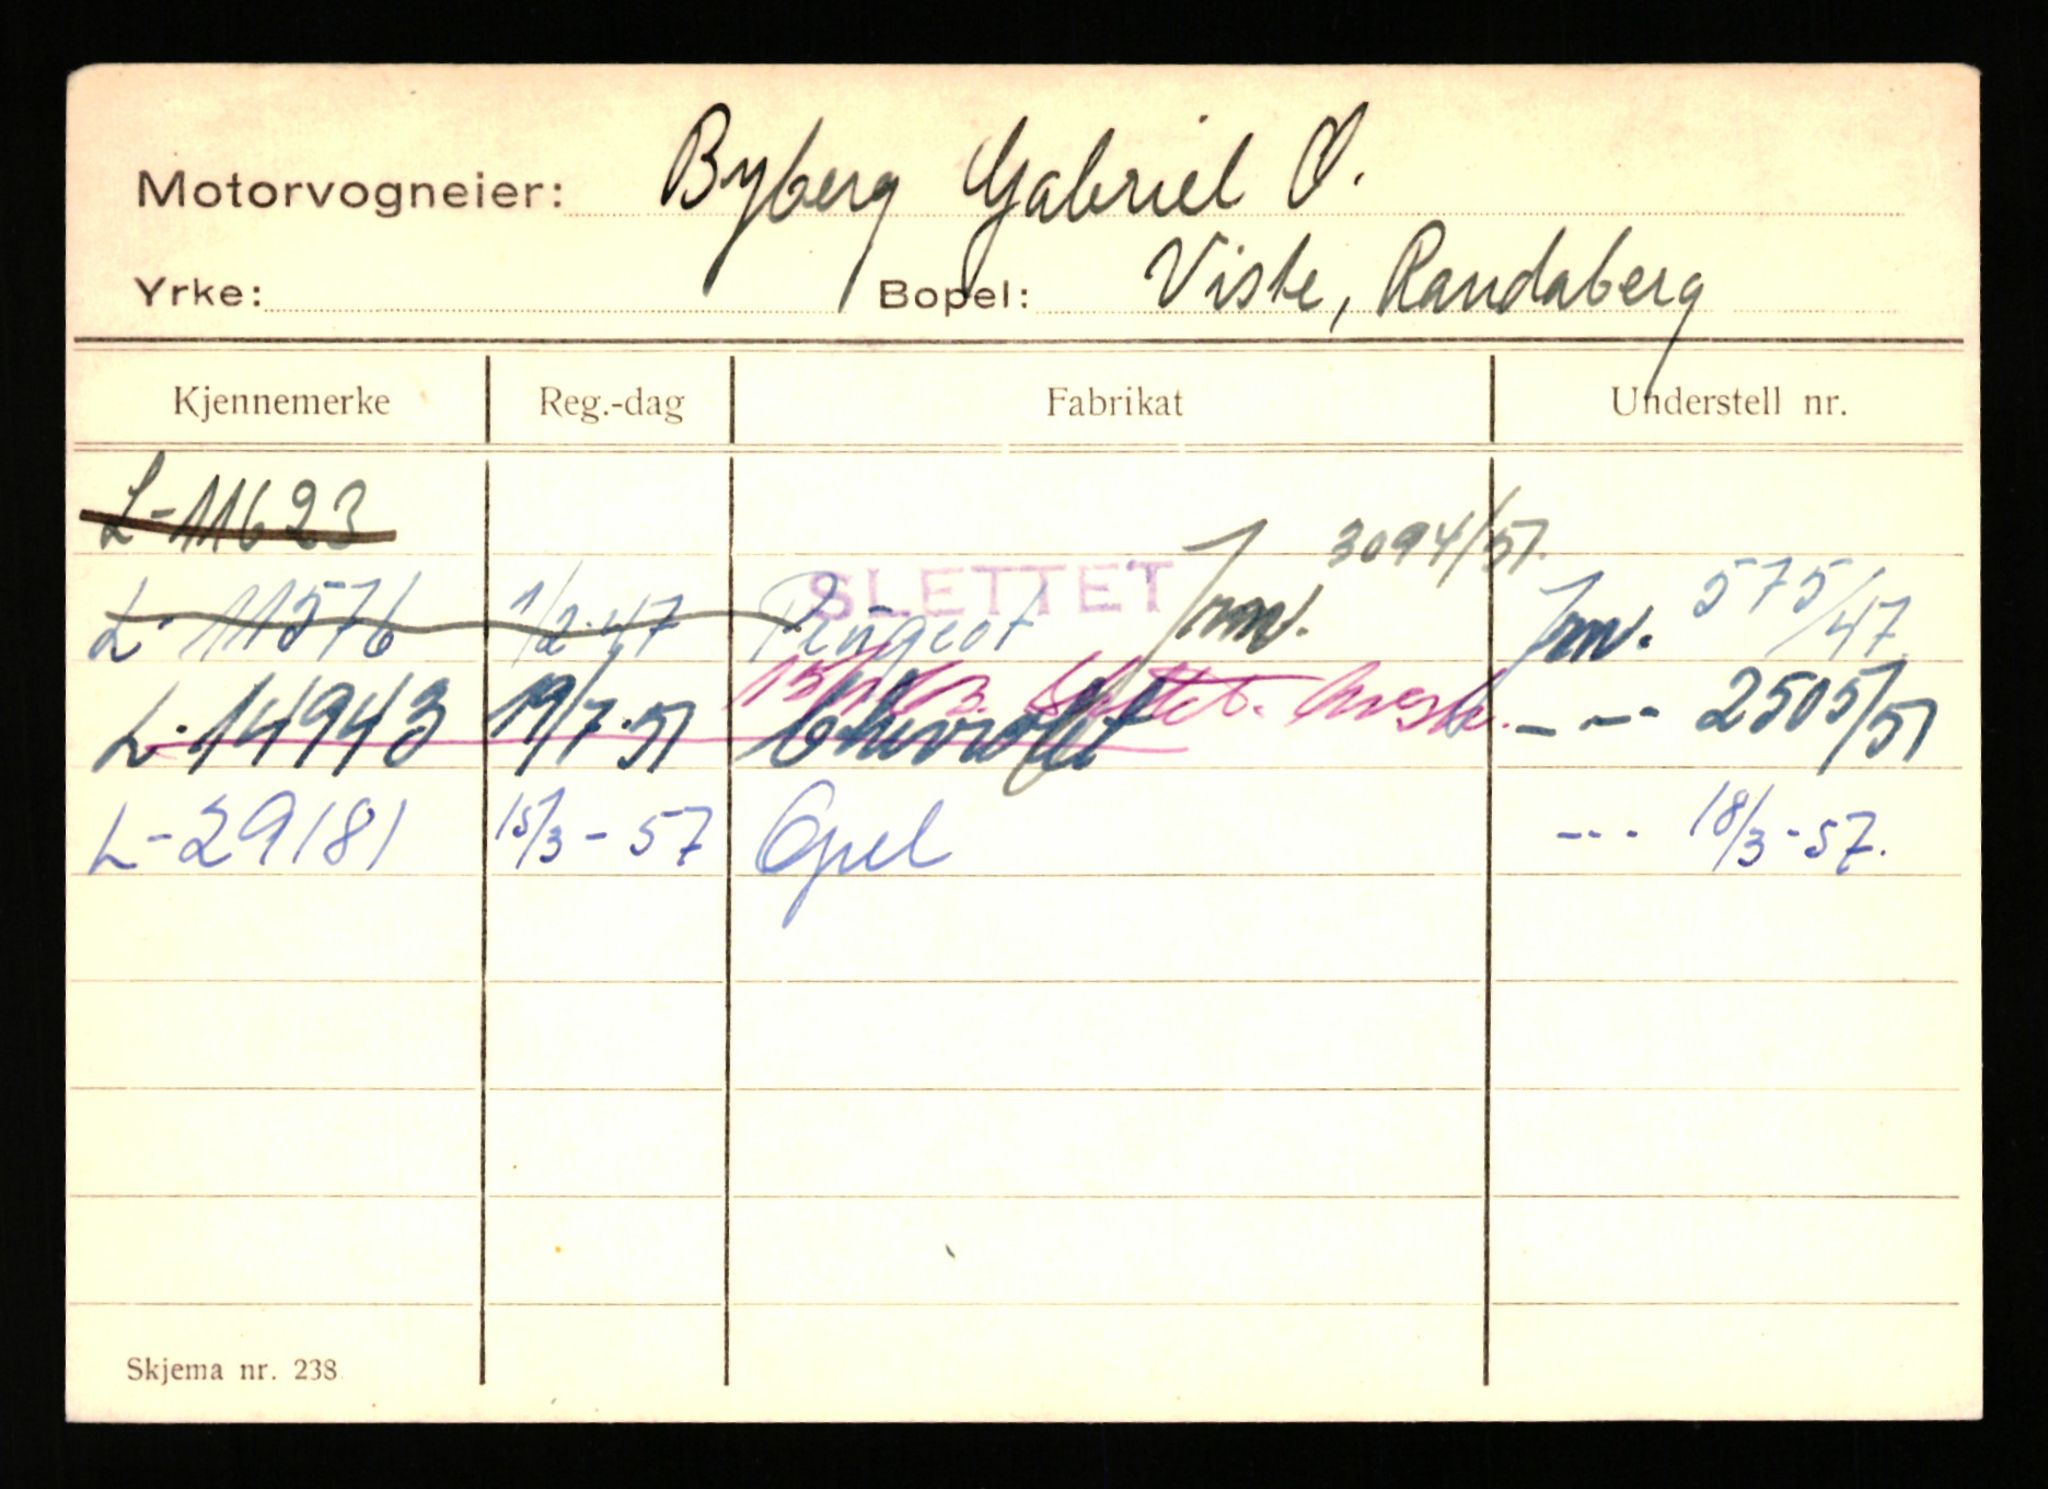 Motorvogneier: Byberg Gabriel O.
Yrke: Bopel: Viste, Randaberg
Kjennemerke Reg.-dag Fabrikat Understell nr.
L-11623
3094/51.
L-11576 1/2-47 Peugeot SLETTET Jnr. Jnr. 575/47
Slettet.
L-14943 19/7-51 Chevrolet --- 2505/51
L-29181 15/3-57 Opel --- 18/3-57.
Skjema nr. 238